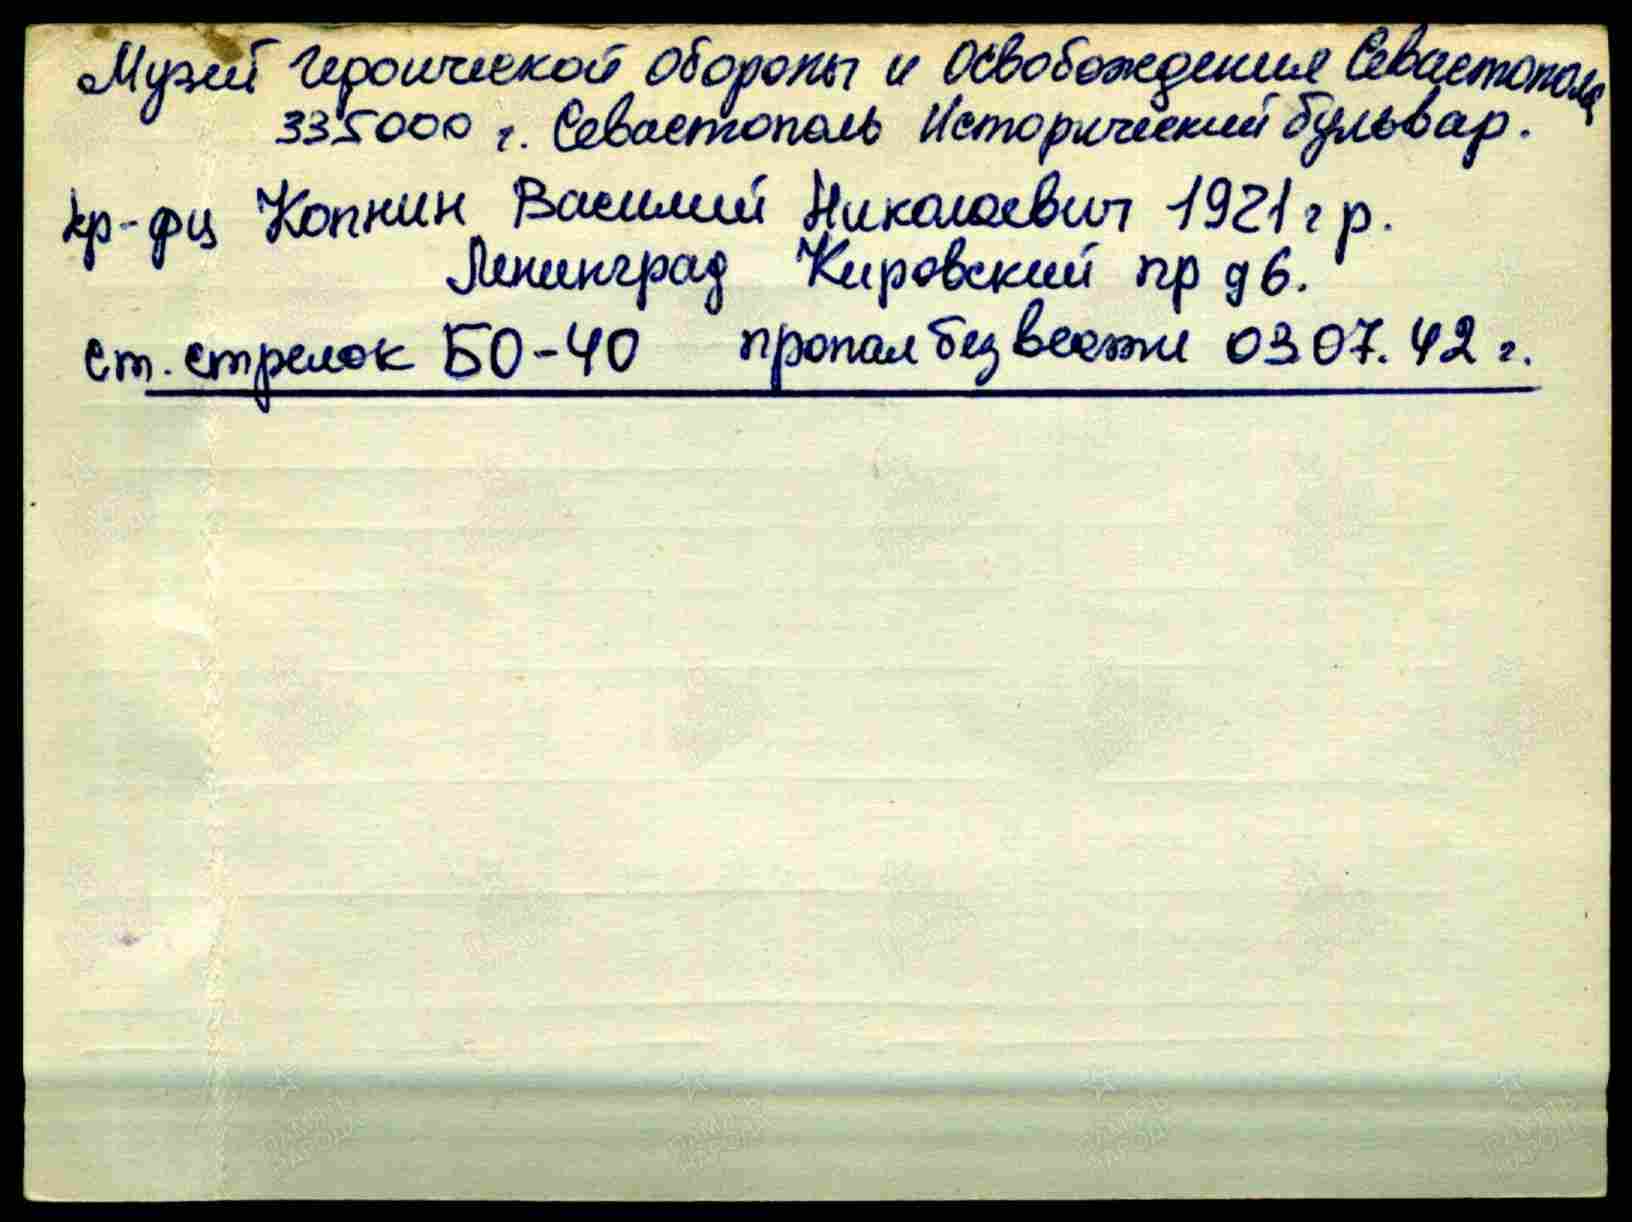 Музей Героической Обороны и Освобождения Севастополя
335000 г. Севастополь Исторический бульвар.
кр-фц Копнин Василий Николаевич 1921 г р.
Ленинград Кировский пр д 6.
ст. стрелок БО-40 пропал без вести 03 07. 42 г.
ПАМЯТЬ НАРОДА